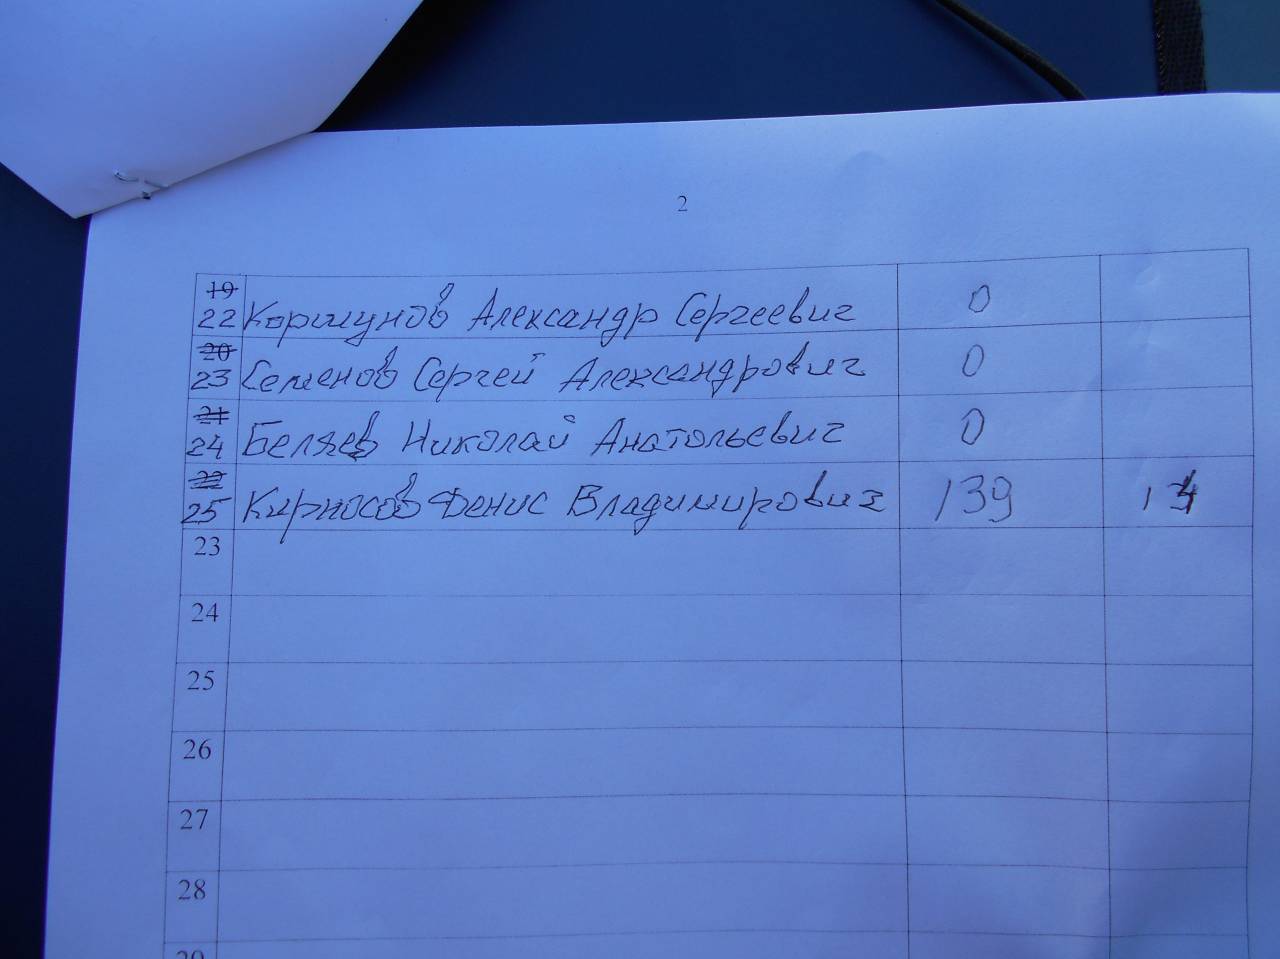 2
19
22 Коршунов Александр Сергеевич 0
20
23 Семенов Сергей Александрович 0
21
24 Беляев Николай Анатольевич 0
22
25 Кирносов Денис Владимирович 139
23
24
25
26
27
28